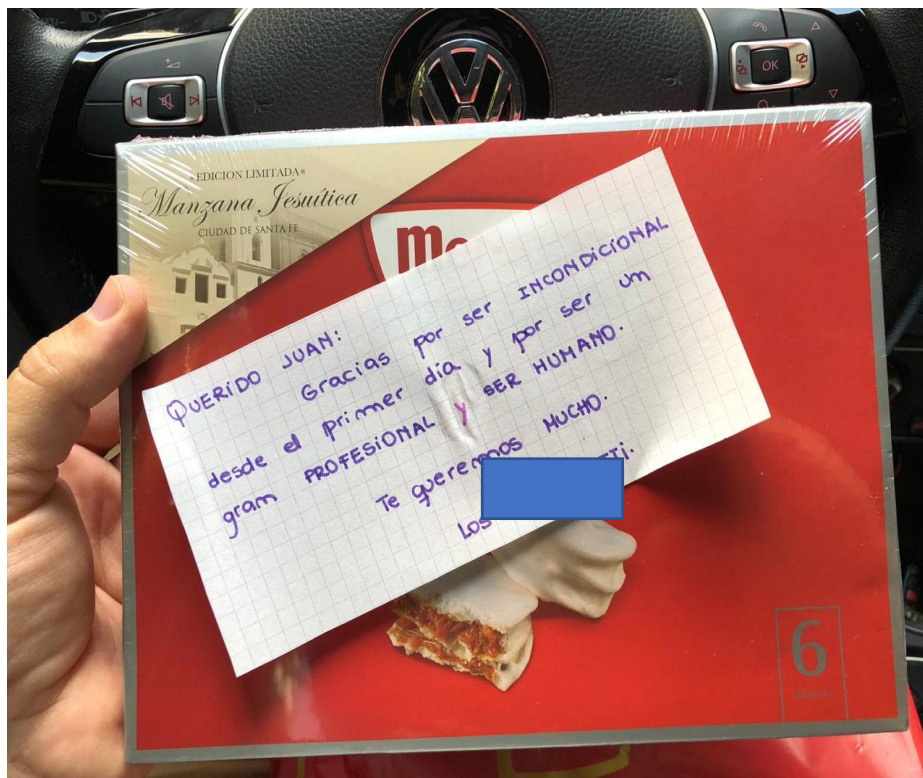 OK
EDICION LIMITADA
Manzana Jesuítica
CIUDAD DE SANTA FE
QUERIDO JUAN:
Gracias por ser INCONDICIONAL
desde el primer día y por ser un
gran PROFESIONAL y SER HUMANO.
Te queremos MUCHO.
LOS
6